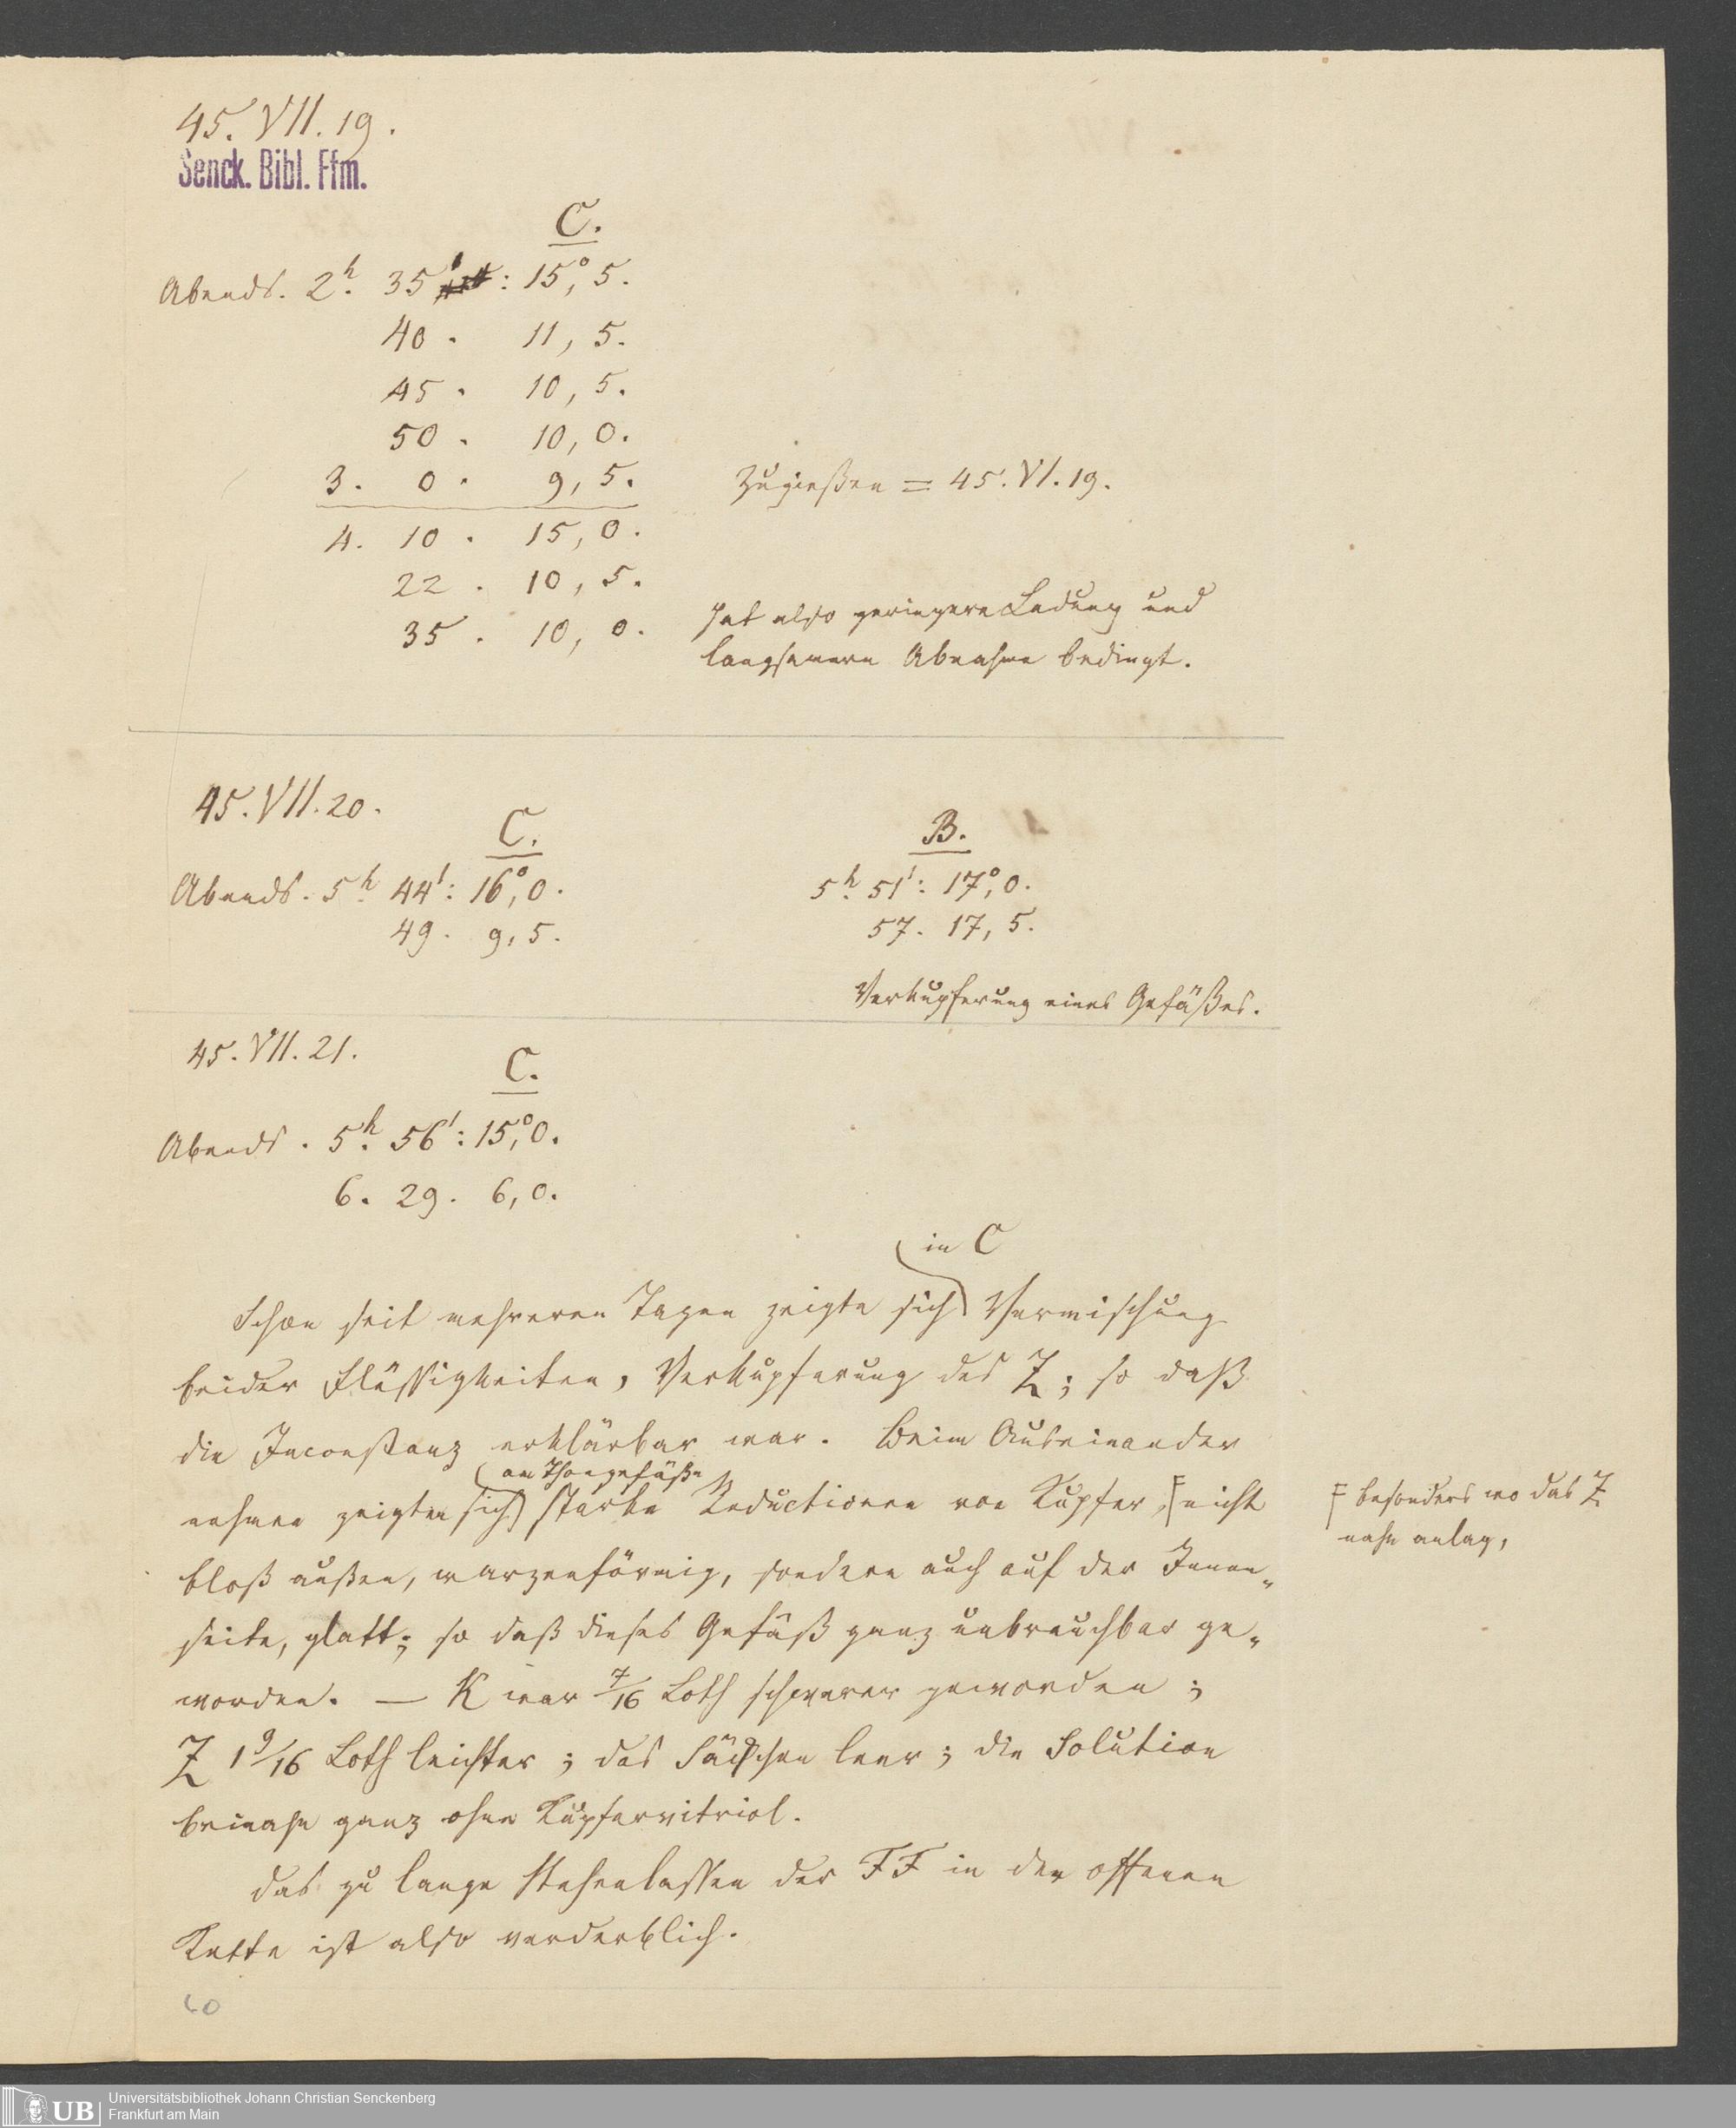 45. VII. 19.
Senck. Bibl. Ffm.
C.
Abends. 2h. 35': 15°,5.
40. 11,5.
45. 10,5.
50. 10,0.
3. 0. 9,5. Zugießen = 45. VI. 19.
4. 10. 15,0.
22. 10,5.
35. 10,0. hat also geringere Ladung und
langsamere Abnahme bedingt.
45. VII. 20.
C. B.
Abends. 5h. 44': 16°,0. 5h. 51': 17°,0.
49. 9,5. 57. 17,5.
Verkupferung eines Gefäßes.
45. VII. 21.
C.
Abends. 5h. 56': 15°,0.
6. 29. 6,0.
in C
Schon seit mehreren Tagen zeigte sich Vermischung
beider Flüssigkeiten, Verkupferung des Z; so daß
die Inconstanz erklärbar war. Beim Auseinander
am Thongefäße
nehmen zeigten sich starke Reductionen von Kupfer, F nicht
F besonders wo das Z
nahe anlag,
bloß außen, warzenförmig, sondern auch auf der Innen-
seite, glatt; so daß dieses Gefäß ganz unbrauchbar ge-
worden. — K war 7/16 Loth schwerer geworden;
Z 1 9/16 Loth leichter; das Säckchen leer; die Solution
beinahe ganz ohne Kupfervitriol.
Das zu lange Stehenlassen der FF in der offenen
Kette ist also verderblich.
60
UB
Universitätsbibliothek Johann Christian Senckenberg
Frankfurt am Main